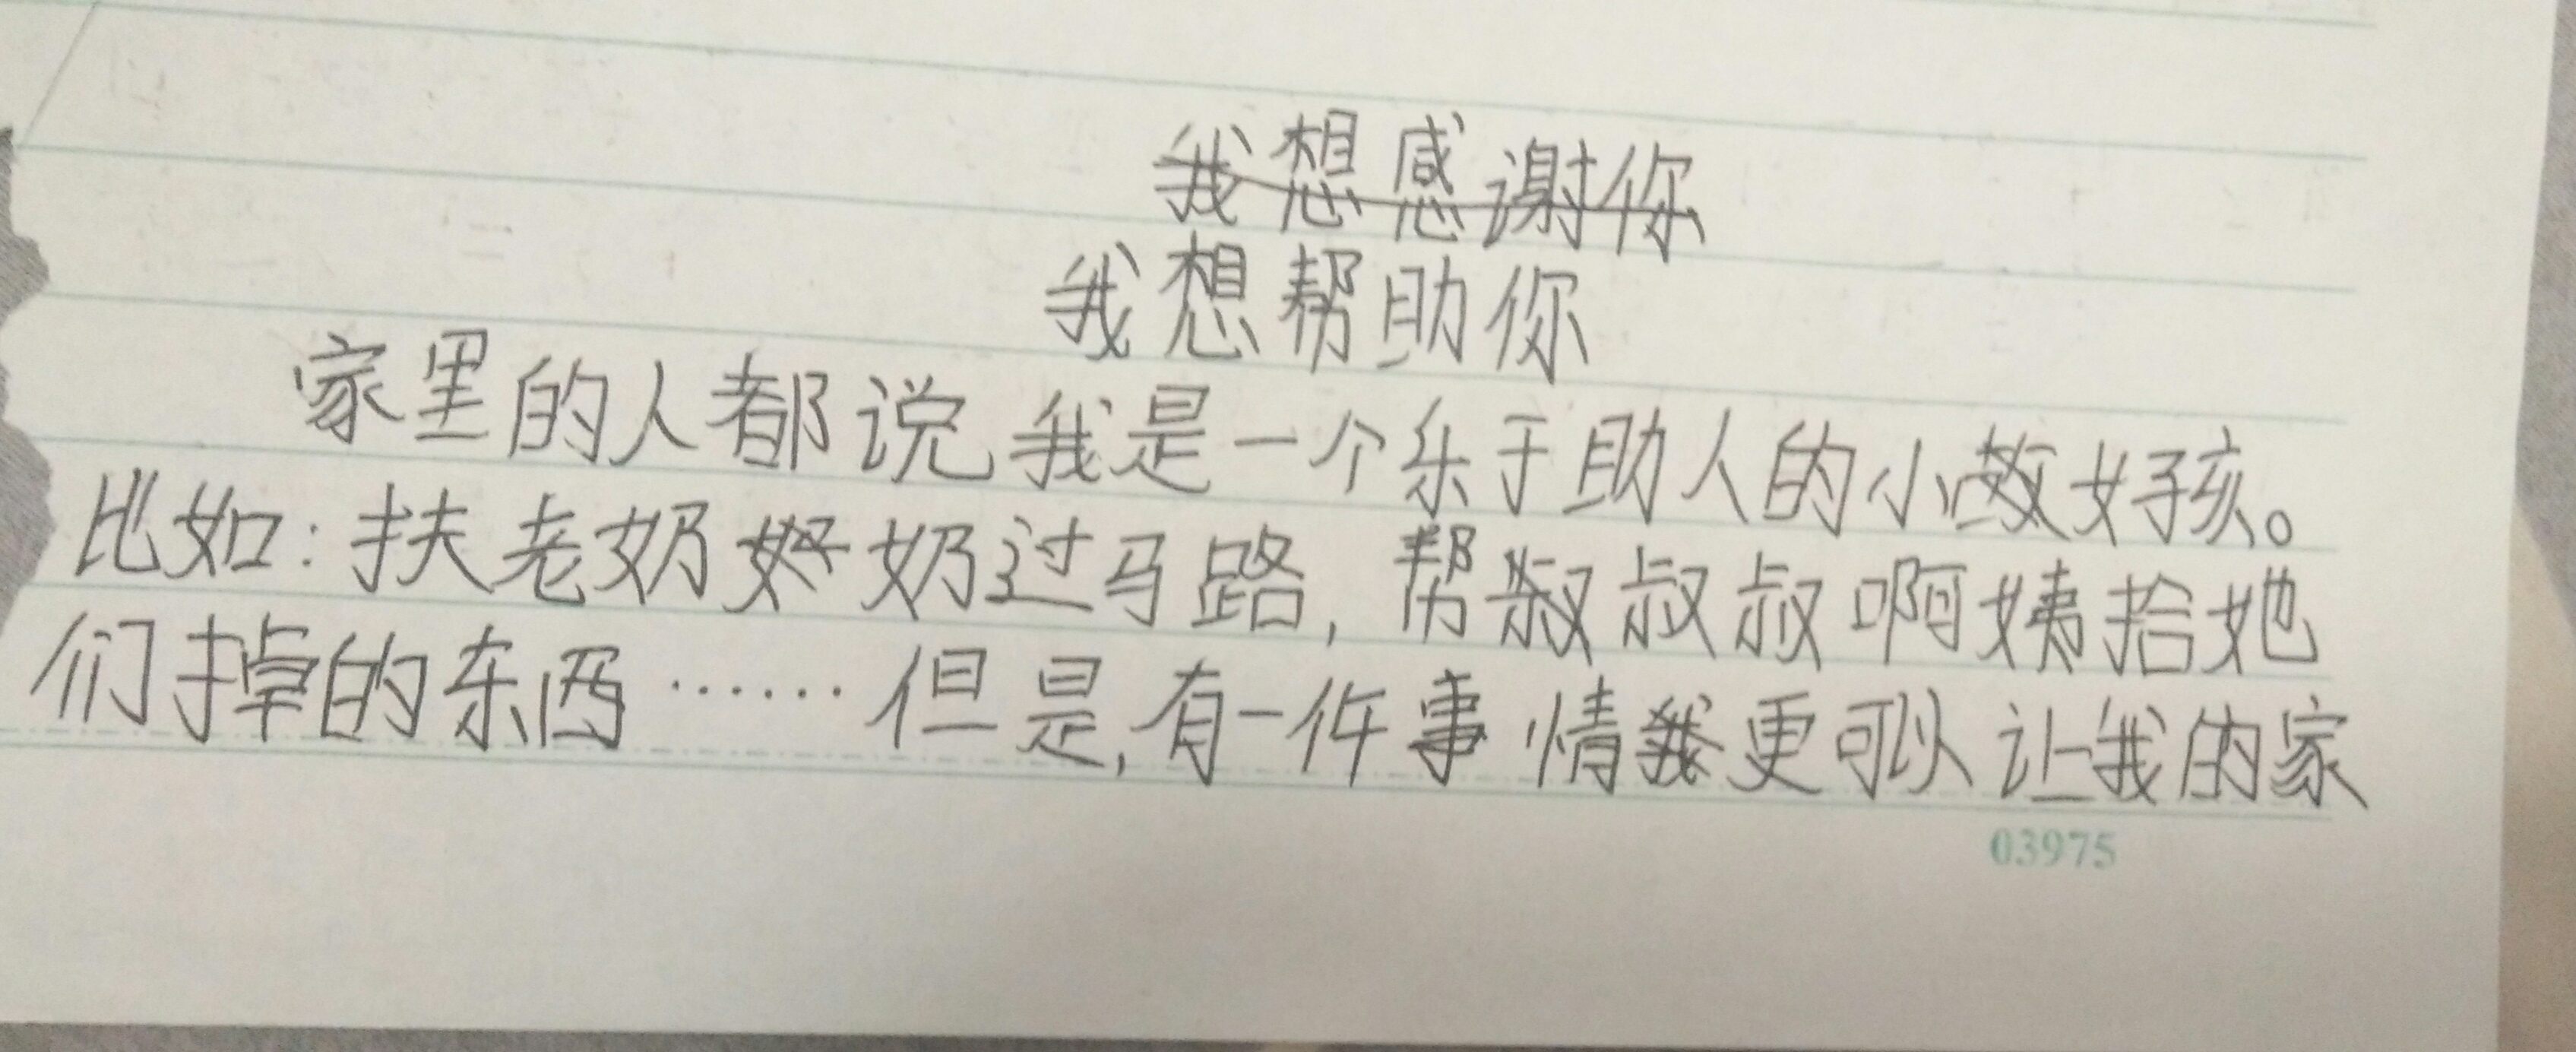 我想感谢你
我想帮助你
家里的人都说我是一个乐于助人的小女孩。
比如:扶老奶奶过马路,帮叔叔啊姨拾她
们掉的东西……但是,有一件事情更可以让我的家
03975